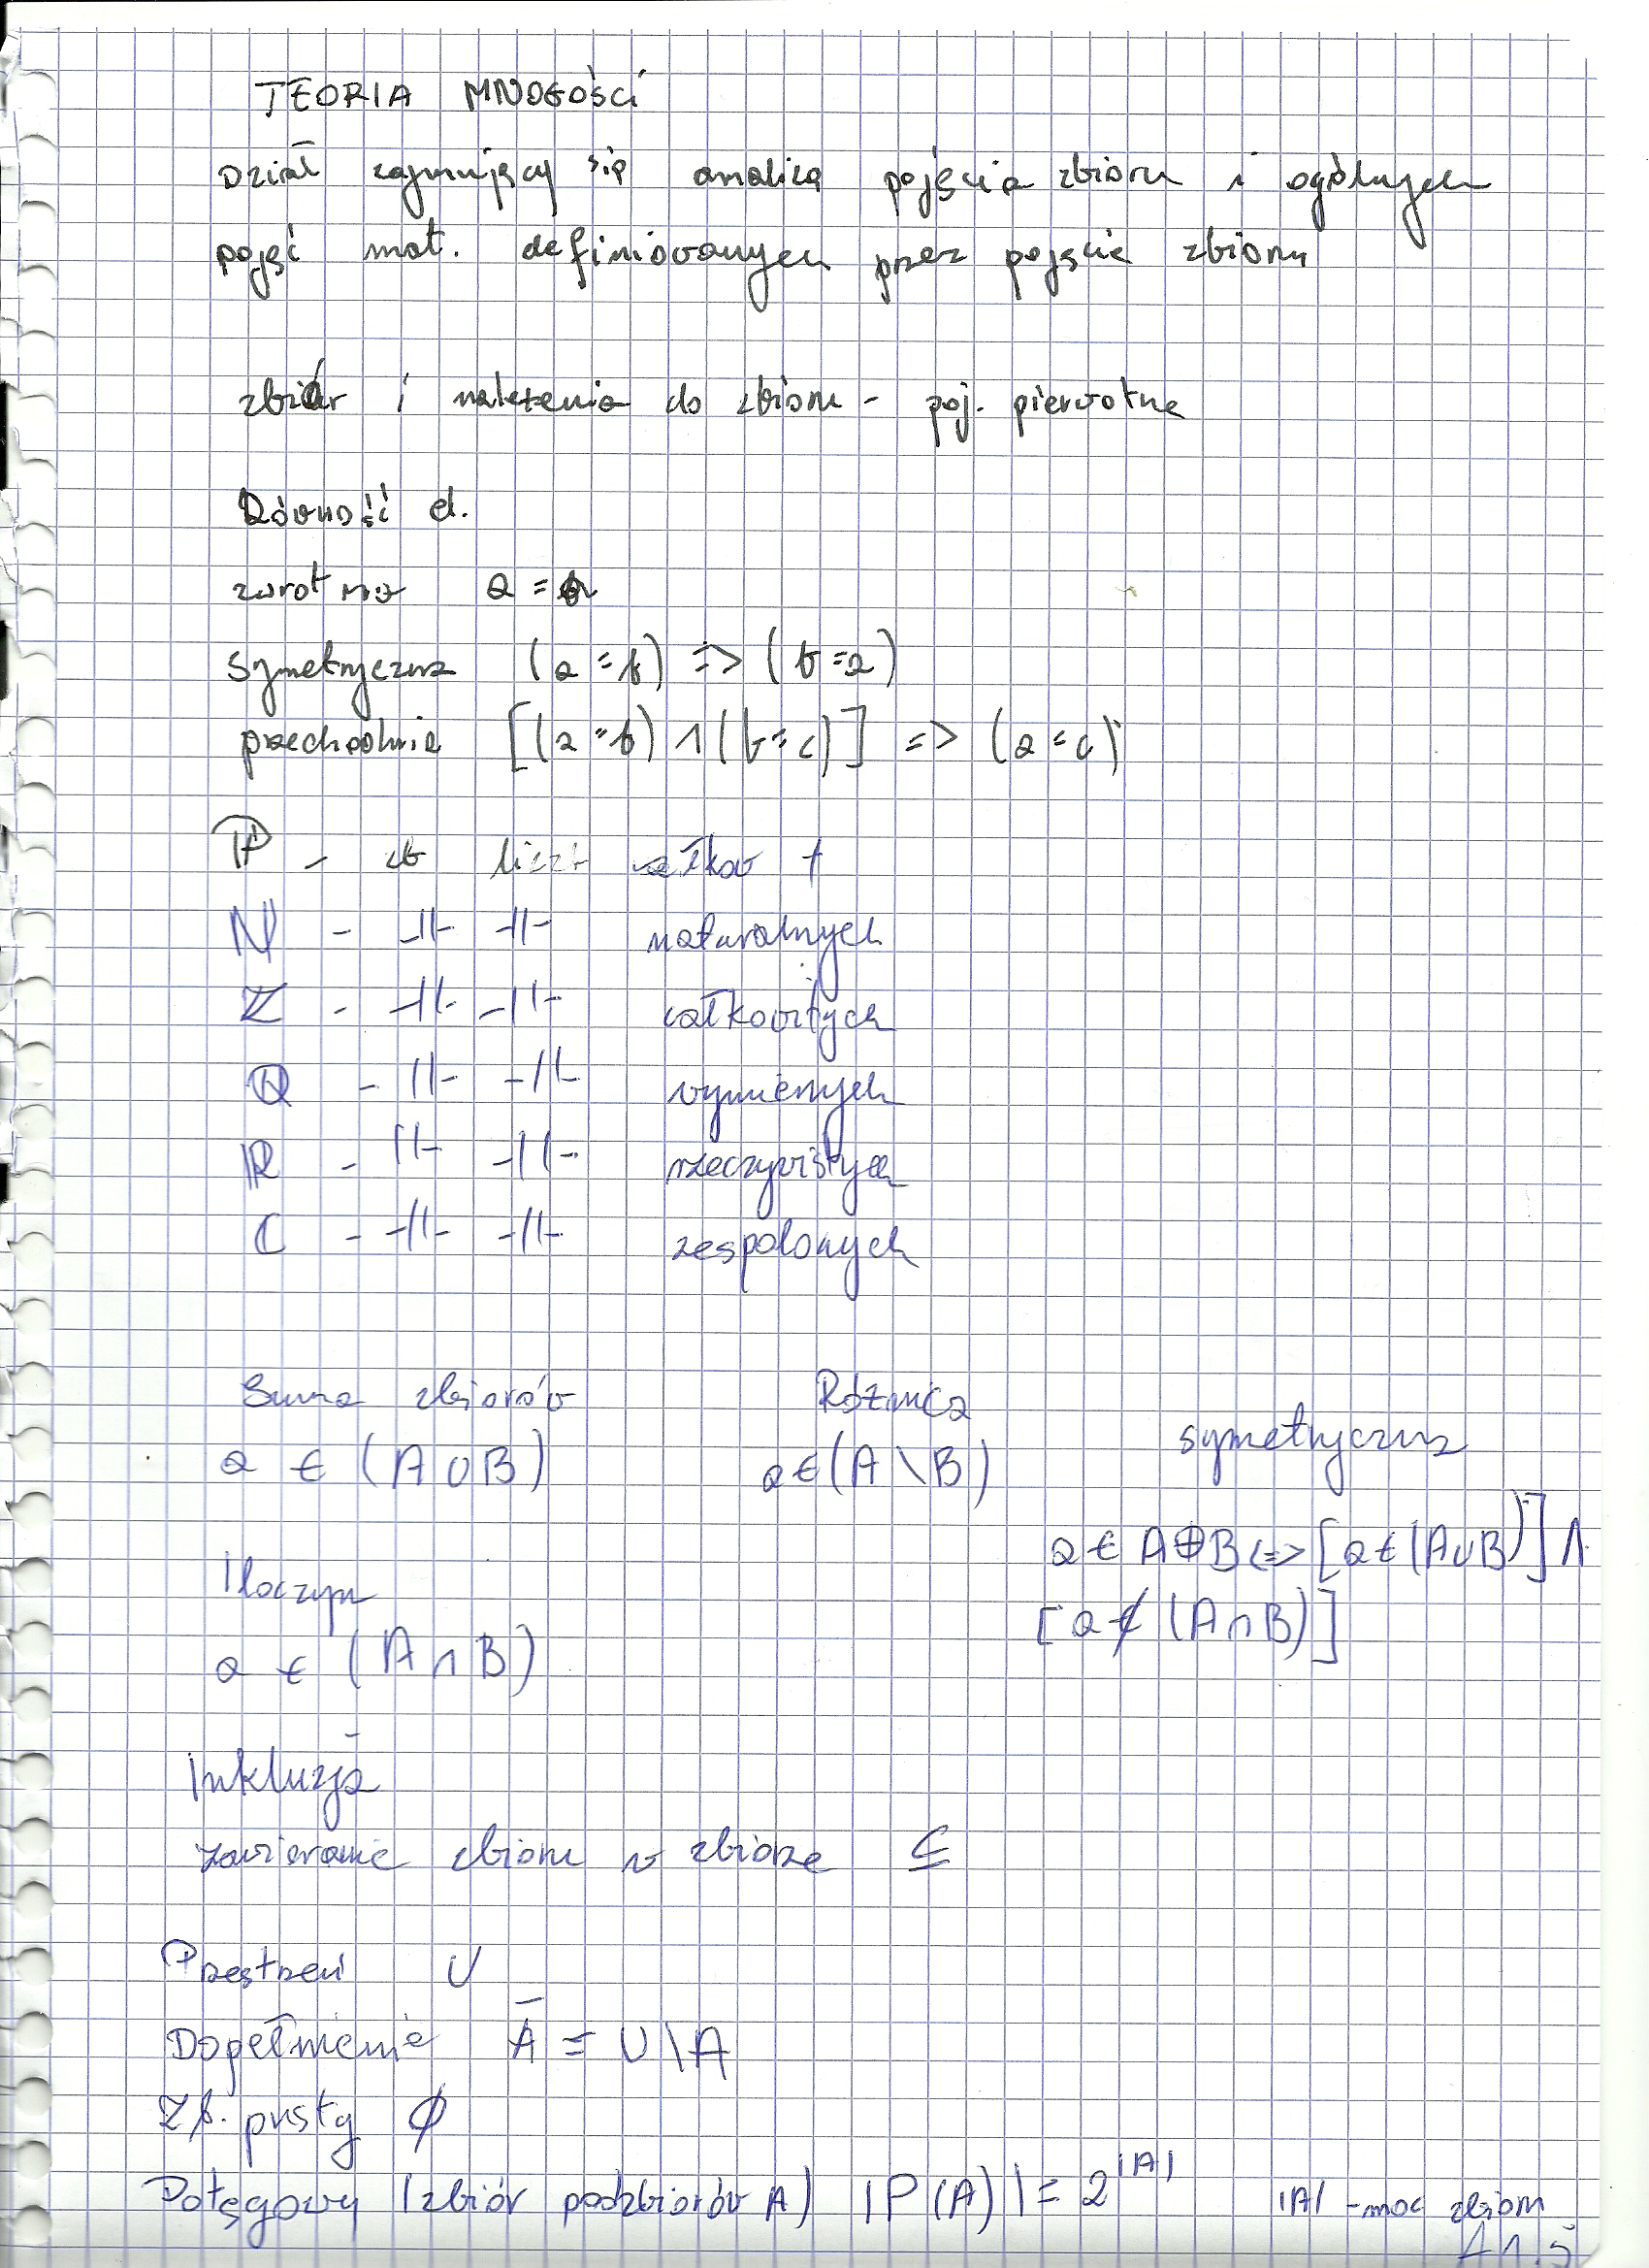 TEORIA MNOGOŚCI
Dział zajmujący się analizą pojęcia zbioru i ogólnych
pojęć mat. definiowanych przez pojęcie zbioru
zbiór i należenia do zbioru - poj. pierwotne
Równość el.
zwrotna a = a
symetryczna (a = b) => (b = a)
przechodnia [(a = b) ∧ (b = c)] => (a = c)
P - zb liczb całkow +
N - -||- -||- naturalnych
Z - -||- -||- całkowitych
Q - -||- -||- wymiernych
R - -||- -||- rzeczywistych
C - -||- -||- zespolonych
Suma zbiorów Różnica symetryczna
a ∈ (A ∪ B) a ∈ (A \ B)
a ∈ A ⊕ B <=> [a ∈ (A ∪ B)] ∧
[a ∉ (A ∩ B)]
Iloczyn
a ∈ (A ∩ B)
Inkluzja
zawieranie zbioru w zbiorze ⊆
Przestrzeń U
Dopełnienie Ā = U \ A
Zb. pusty ∅
Potęgowy (zbiór podzbiorów A) |P(A)| = 2^|A| |A| - moc zbioru